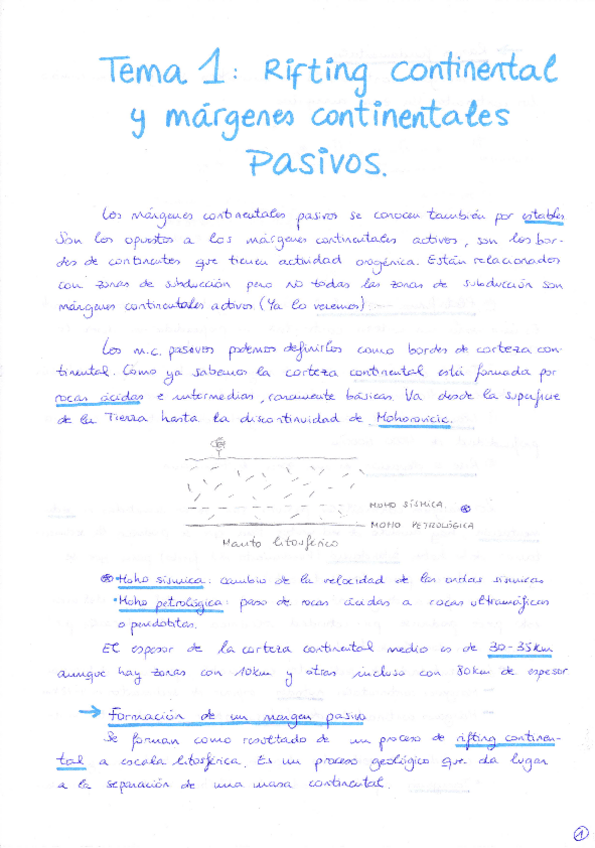 Tema 1: Rifting continental
y márgenes continentales
Pasivos.
Los márgenes continentales pasivos se conocen también por estables
Son los opuestos a los márgenes continentales activos, son los bor-
des de continentes que tienen actividad orogénica. Están relacionados
con zonas de subducción pero no todas las zonas de subducción son
márgenes continentales activos (Ya lo veremos)
Los m.c. pasivos podemos definirlos como bordes de corteza con-
tinental. Como ya sabemos la corteza continental está formada por
rocas ácidas e intermedias, raramente básicas. Va desde la superficie
de la Tierra hasta la discontinuidad de Mohorovicic.
MOHO SÍSMICA
MOHO PETROLÓGICA
Manto litosférico
Moho sísmica: cambio de la velocidad de las ondas sísmicas
Moho petrológica: paso de rocas ácidas a rocas ultramáficas
o peridotitas.
El espesor de la corteza continental medio es de 30-35km
aunque hay zonas con 10km y otras incluso con 80km de espesor
→ Formación de un margen pasivo
Se forman como resultado de un proceso de rifting continen-
tal a escala litosférica. Es un proceso geológico que da lugar
a la separación de una masa continental.
1